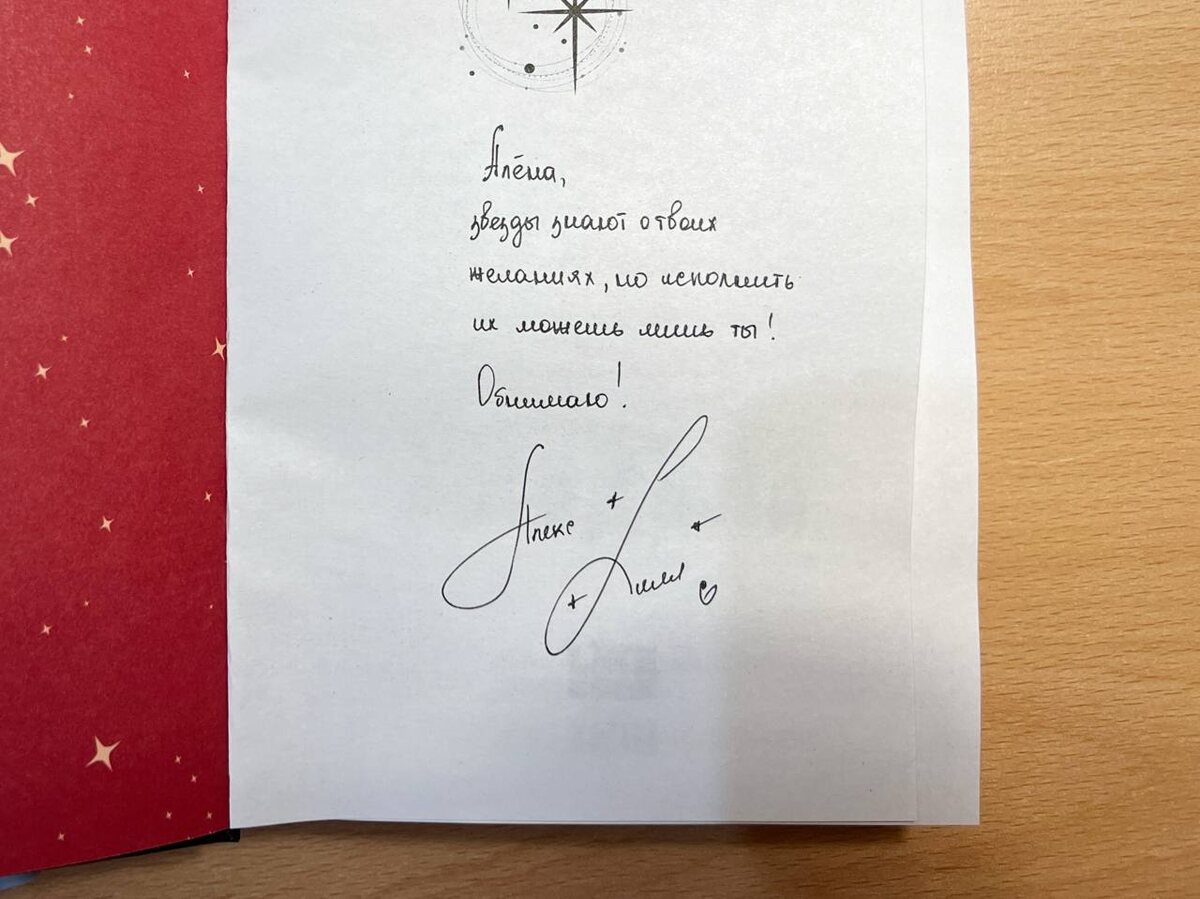 Алёна,
звезды знают о твоих
желаниях, но исполнить
их можешь лишь ты!
Обнимаю!
Алекс
Хилл